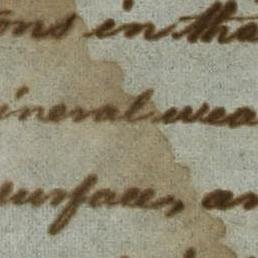 ons in tha
ineral wea
surfaces, an